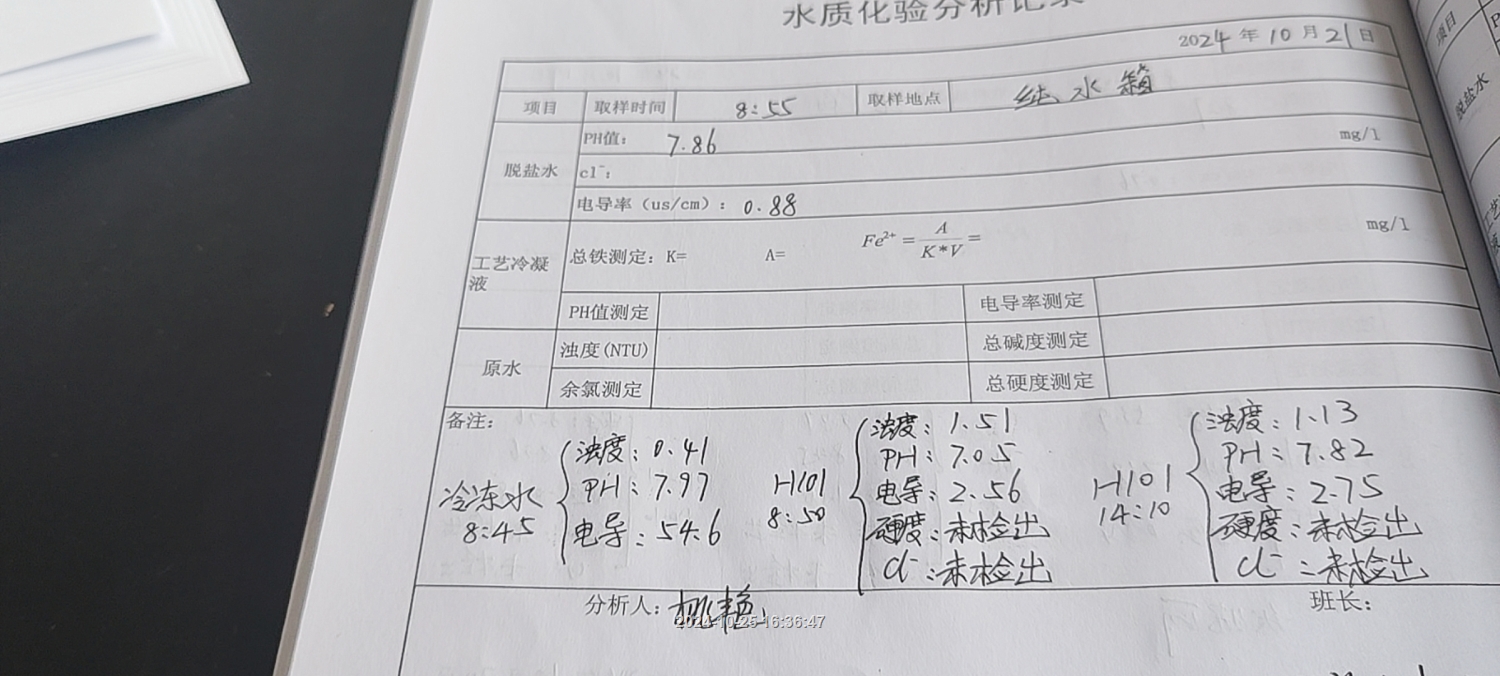 水质化验分析记录
2024 年 10 月 21 日
项目 取样时间 8:55 取样地点 纯水箱
脱盐水 PH值: 7.86 mg/l
cl⁻:
电导率（us/cm）: 0.88
工艺冷凝液 总铁测定: K= A= Fe²⁺ = A / K*V = mg/l
PH值测定 电导率测定
原水 浊度(NTU) 总碱度测定
余氯测定 总硬度测定
备注:
冷冻水 8:45
浊度: 0.41
PH: 7.97
电导: 54.6
H101 8:50
浊度: 1.51
PH: 7.05
电导: 2.56
硬度: 未检出
cl⁻: 未检出
H101 14:10
浊度: 1.13
PH: 7.82
电导: 2.75
硬度: 未检出
cl⁻: 未检出
分析人: 班长:
2024-10-25 16:36:47
项目
脱盐水